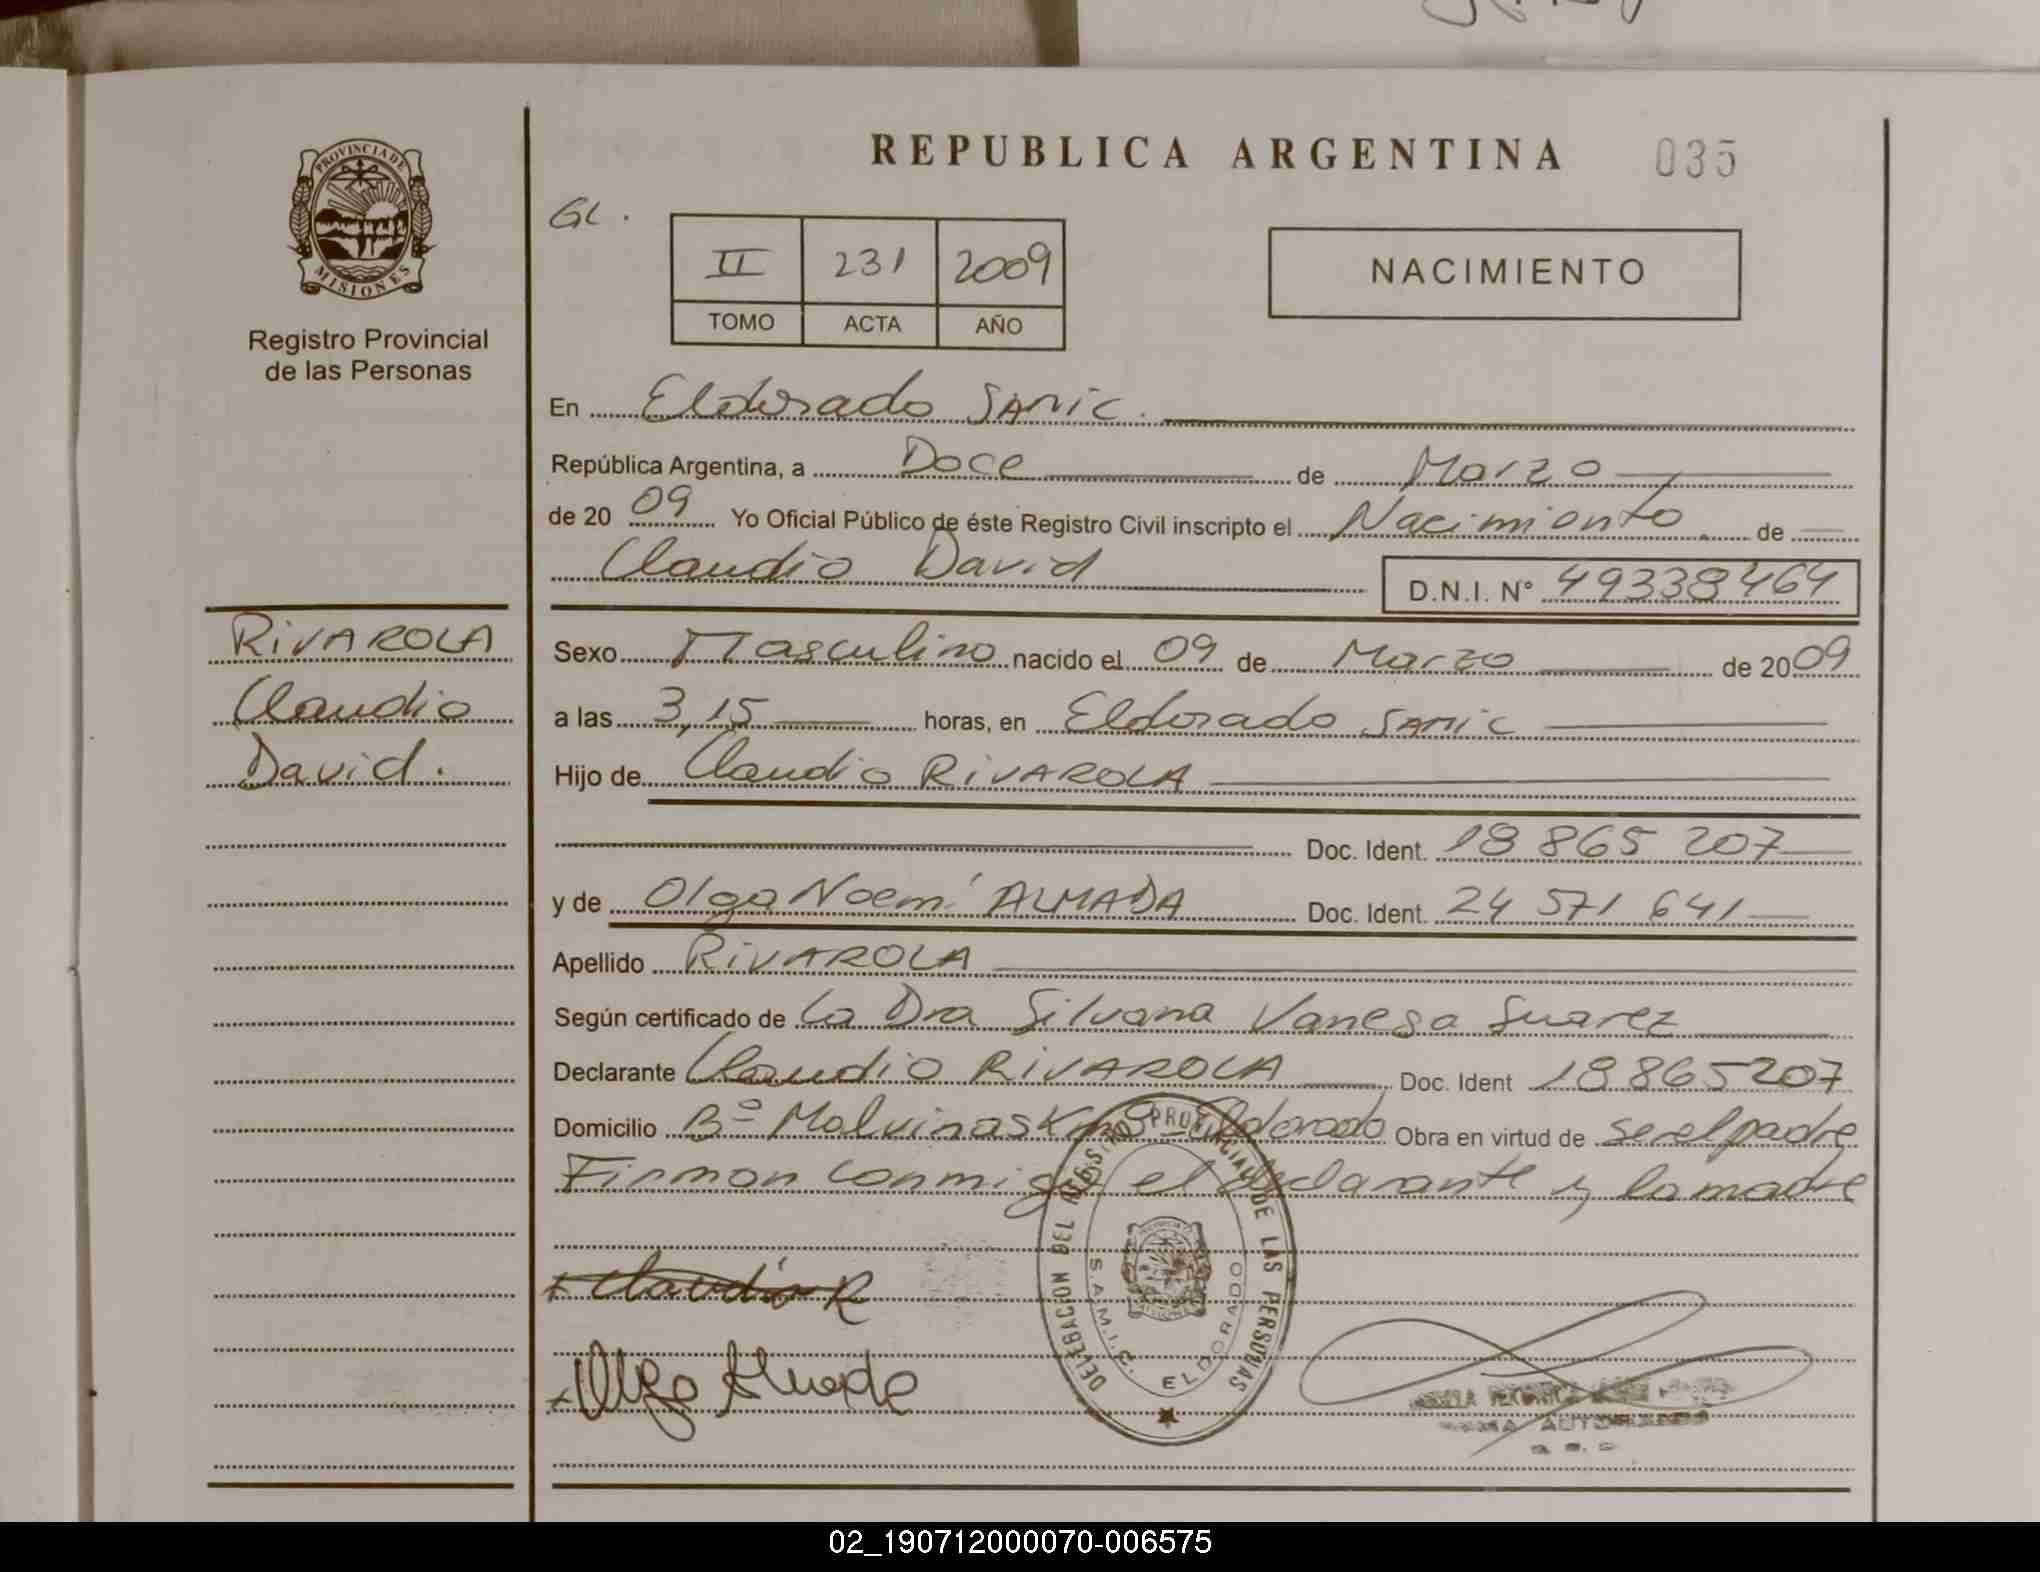 REPUBLICA ARGENTINA 035
PROVINCIA DE
MISIONES
Registro Provincial
de las Personas
GL.
II 231 2009
TOMO ACTA AÑO
NACIMIENTO
En Eldorado SAMIC.
República Argentina, a Doce de Marzo
de 2009 Yo Oficial Público de éste Registro Civil inscripto el Nacimiento de
Claudio David D.N.I. Nº 49338464
RIVAROLA
Claudio
David.
Sexo Masculino nacido el 09 de Marzo de 2009
a las 3,15 horas, en Eldorado SAMIC
Hijo de Claudio RIVAROLA
Doc. Ident. 18 865 207
y de Olga Noemí ALMADA Doc. Ident. 24 571 641
Apellido RIVAROLA
Según certificado de La Dra Silvana Vanesa Suarez
Declarante Claudio RIVAROLA Doc. Ident 18865207
Domicilio Bº Malvinas Eldorado Obra en virtud de ser el padre
Firman conmigo el declarante y la madre
Claudio R
Olga Almada
DELEGACION DEL REGISTRO PROVINCIAL DE LAS PERSONAS
S.A.M.I.C. ELDORADO
02_190712000070-006575